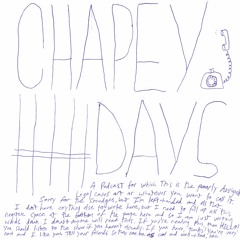 CHAPEY
DAVS
A Podcast for which This is the poorly designed
Legal cover art or whatever you want to call it
Sorry for the smudges, but I'm left-handed and all that
I don't have anything else to write here, but I need to fill up all this
negative space at the bottom of the page here and so I am just writing
while damn I doubt anyone will read this. If you're reading this then HELLO!
You should listen to the show if you haven't already. If you have, thanks! You're very
cool and I like you. Tell your friends so they can be cool and